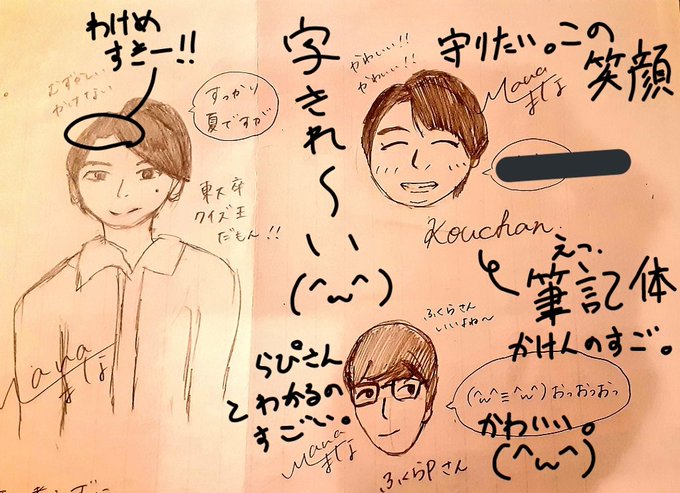 わけめ
すきー!!
むずかしい
かけない
すっかり
夏ですが
東大卒
クイズ王
だもん!!
Mana
まな
字きれ〜い
(^ω^)
かわいい!!
かわいい!!
守りたい。この
笑顔
Mana
まな
Kouchan.
えっ、
筆記体
かけんのすご。
ふくらさん
いいよね〜
らぴさん
とわかるの
すごい。
Mana
まな
(^ω^≡^ω^)おっおっおっ
かわいい。
(^ω^)
ふくらPさん